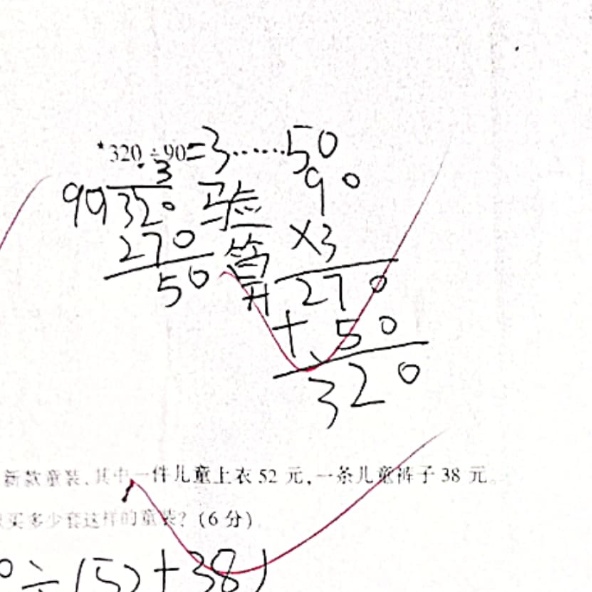 *320÷90=3……50
3
90
90 320 验
270 算 ×3
50 270
+ 50
320
新款童装,其中一件儿童上衣52元,一条儿童裤子38元。
买多少套这样的童装?(6分)
0÷(52+38)